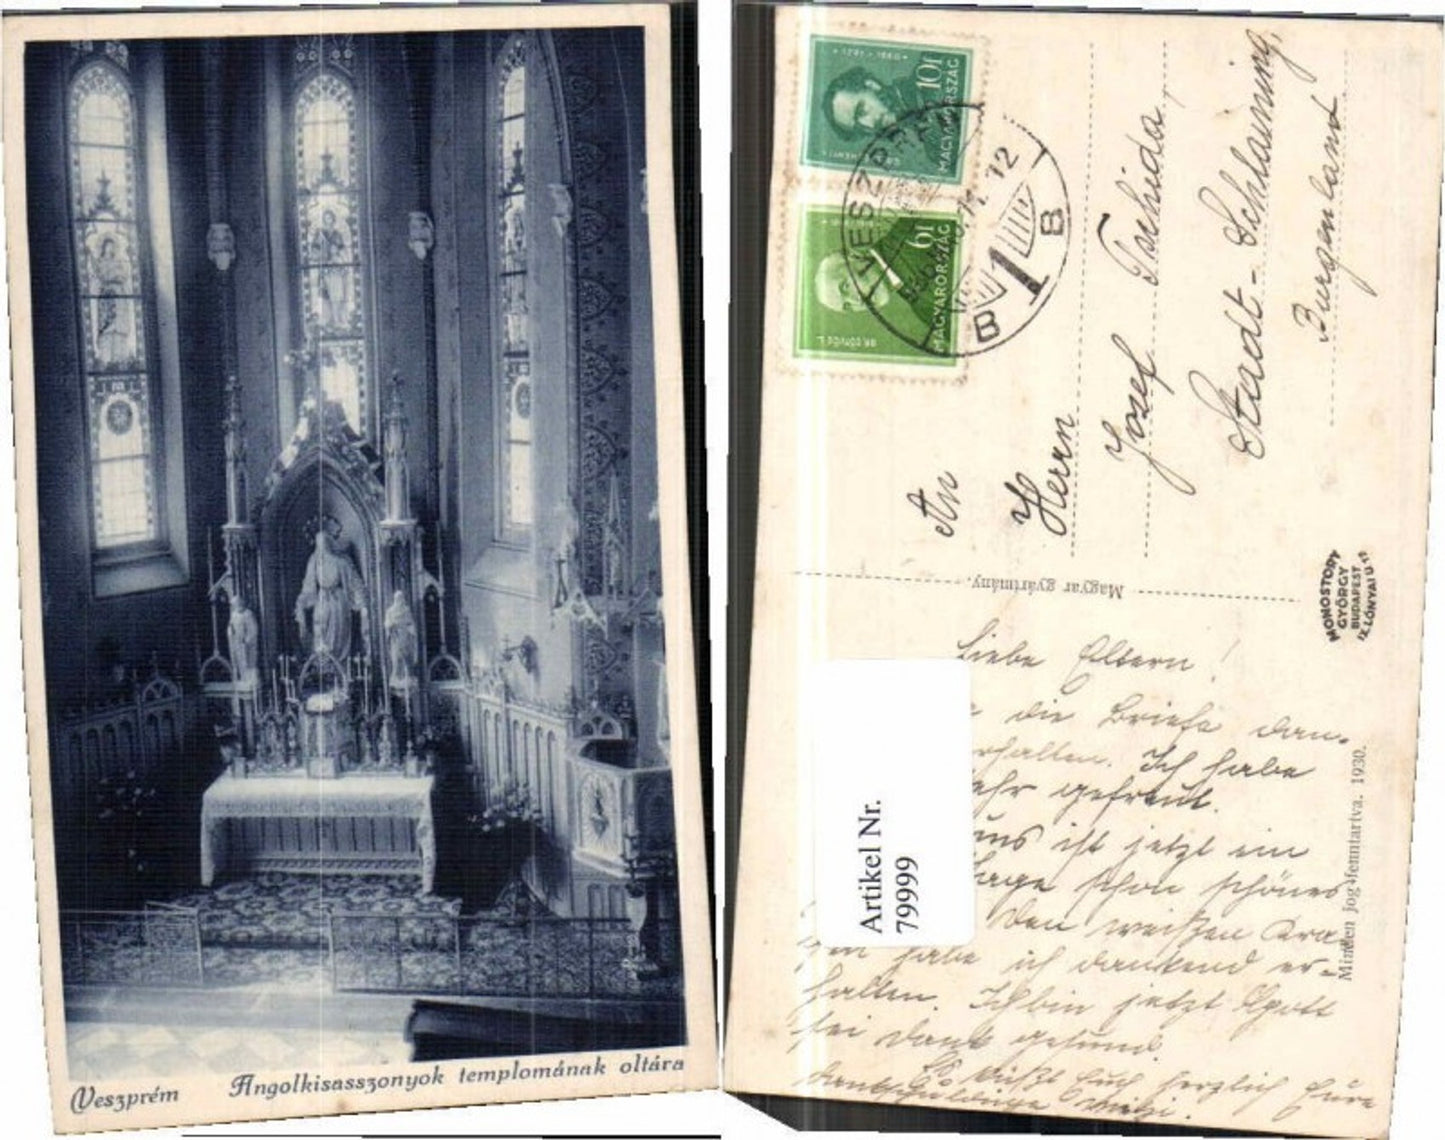 Veszprém Angolkisasszonyok templomának oltára
10f
MAGYARORSZÁG
6f
MAGYARORSZÁG
VESZPRÉM
12
B 1 B
An
Herrn
Josef Tschida,
Stadt-Schlaining,
Burgenland
Magyar gyártmány.
MONOSTORY
GYÖRGY
BUDAPEST
IX. LÓNYAI U.
Minden jog fenntartva. 1930.
Artikel Nr.
79999
Liebe Eltern!
die Briefe dan-
erhalten. Ich habe
sehr gefreut.
uns ist jetzt ein
Tage schon schönes
Den weißen Kra-
gen habe ich dankend er-
halten. Ich bin jetzt Gott
sei Dank gesund.
Es küßt Euch herzlich Eure
dankschuldige Mitzi.